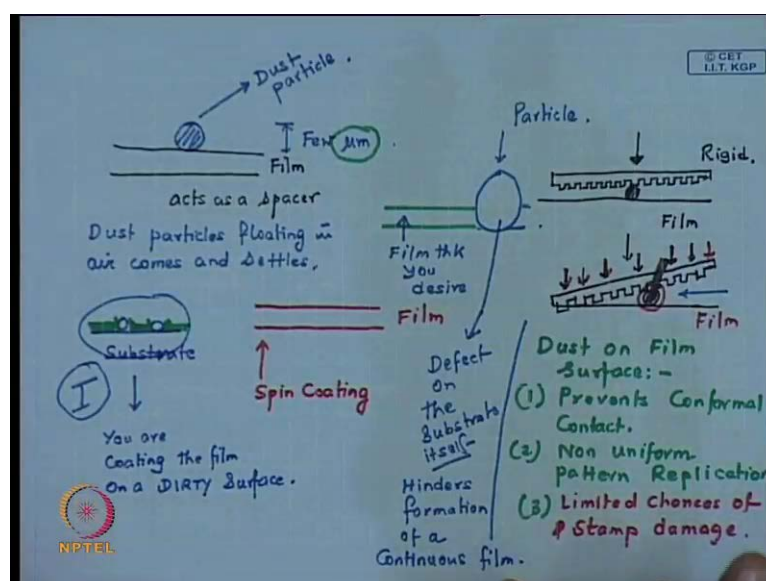 © CET
I.I.T. KGP
Dust
particle.
Few μm
Film
acts as a spacer
Dust particles floating in
air comes and settles.
Substrate
I
You are
Coating the film
on a DIRTY Surface.
Film
Spin Coating
Particle.
Film thk
you
desire
Defect
on
the
Substrate
itself
Hinders
formation
of a
Continuous film.
Rigid.
Film
Film
Dust on Film
Surface:-
(1) Prevents Conformal
Contact.
(2) Non uniform
pattern Replication
(3) Limited Chances of
Stamp damage.
NPTEL